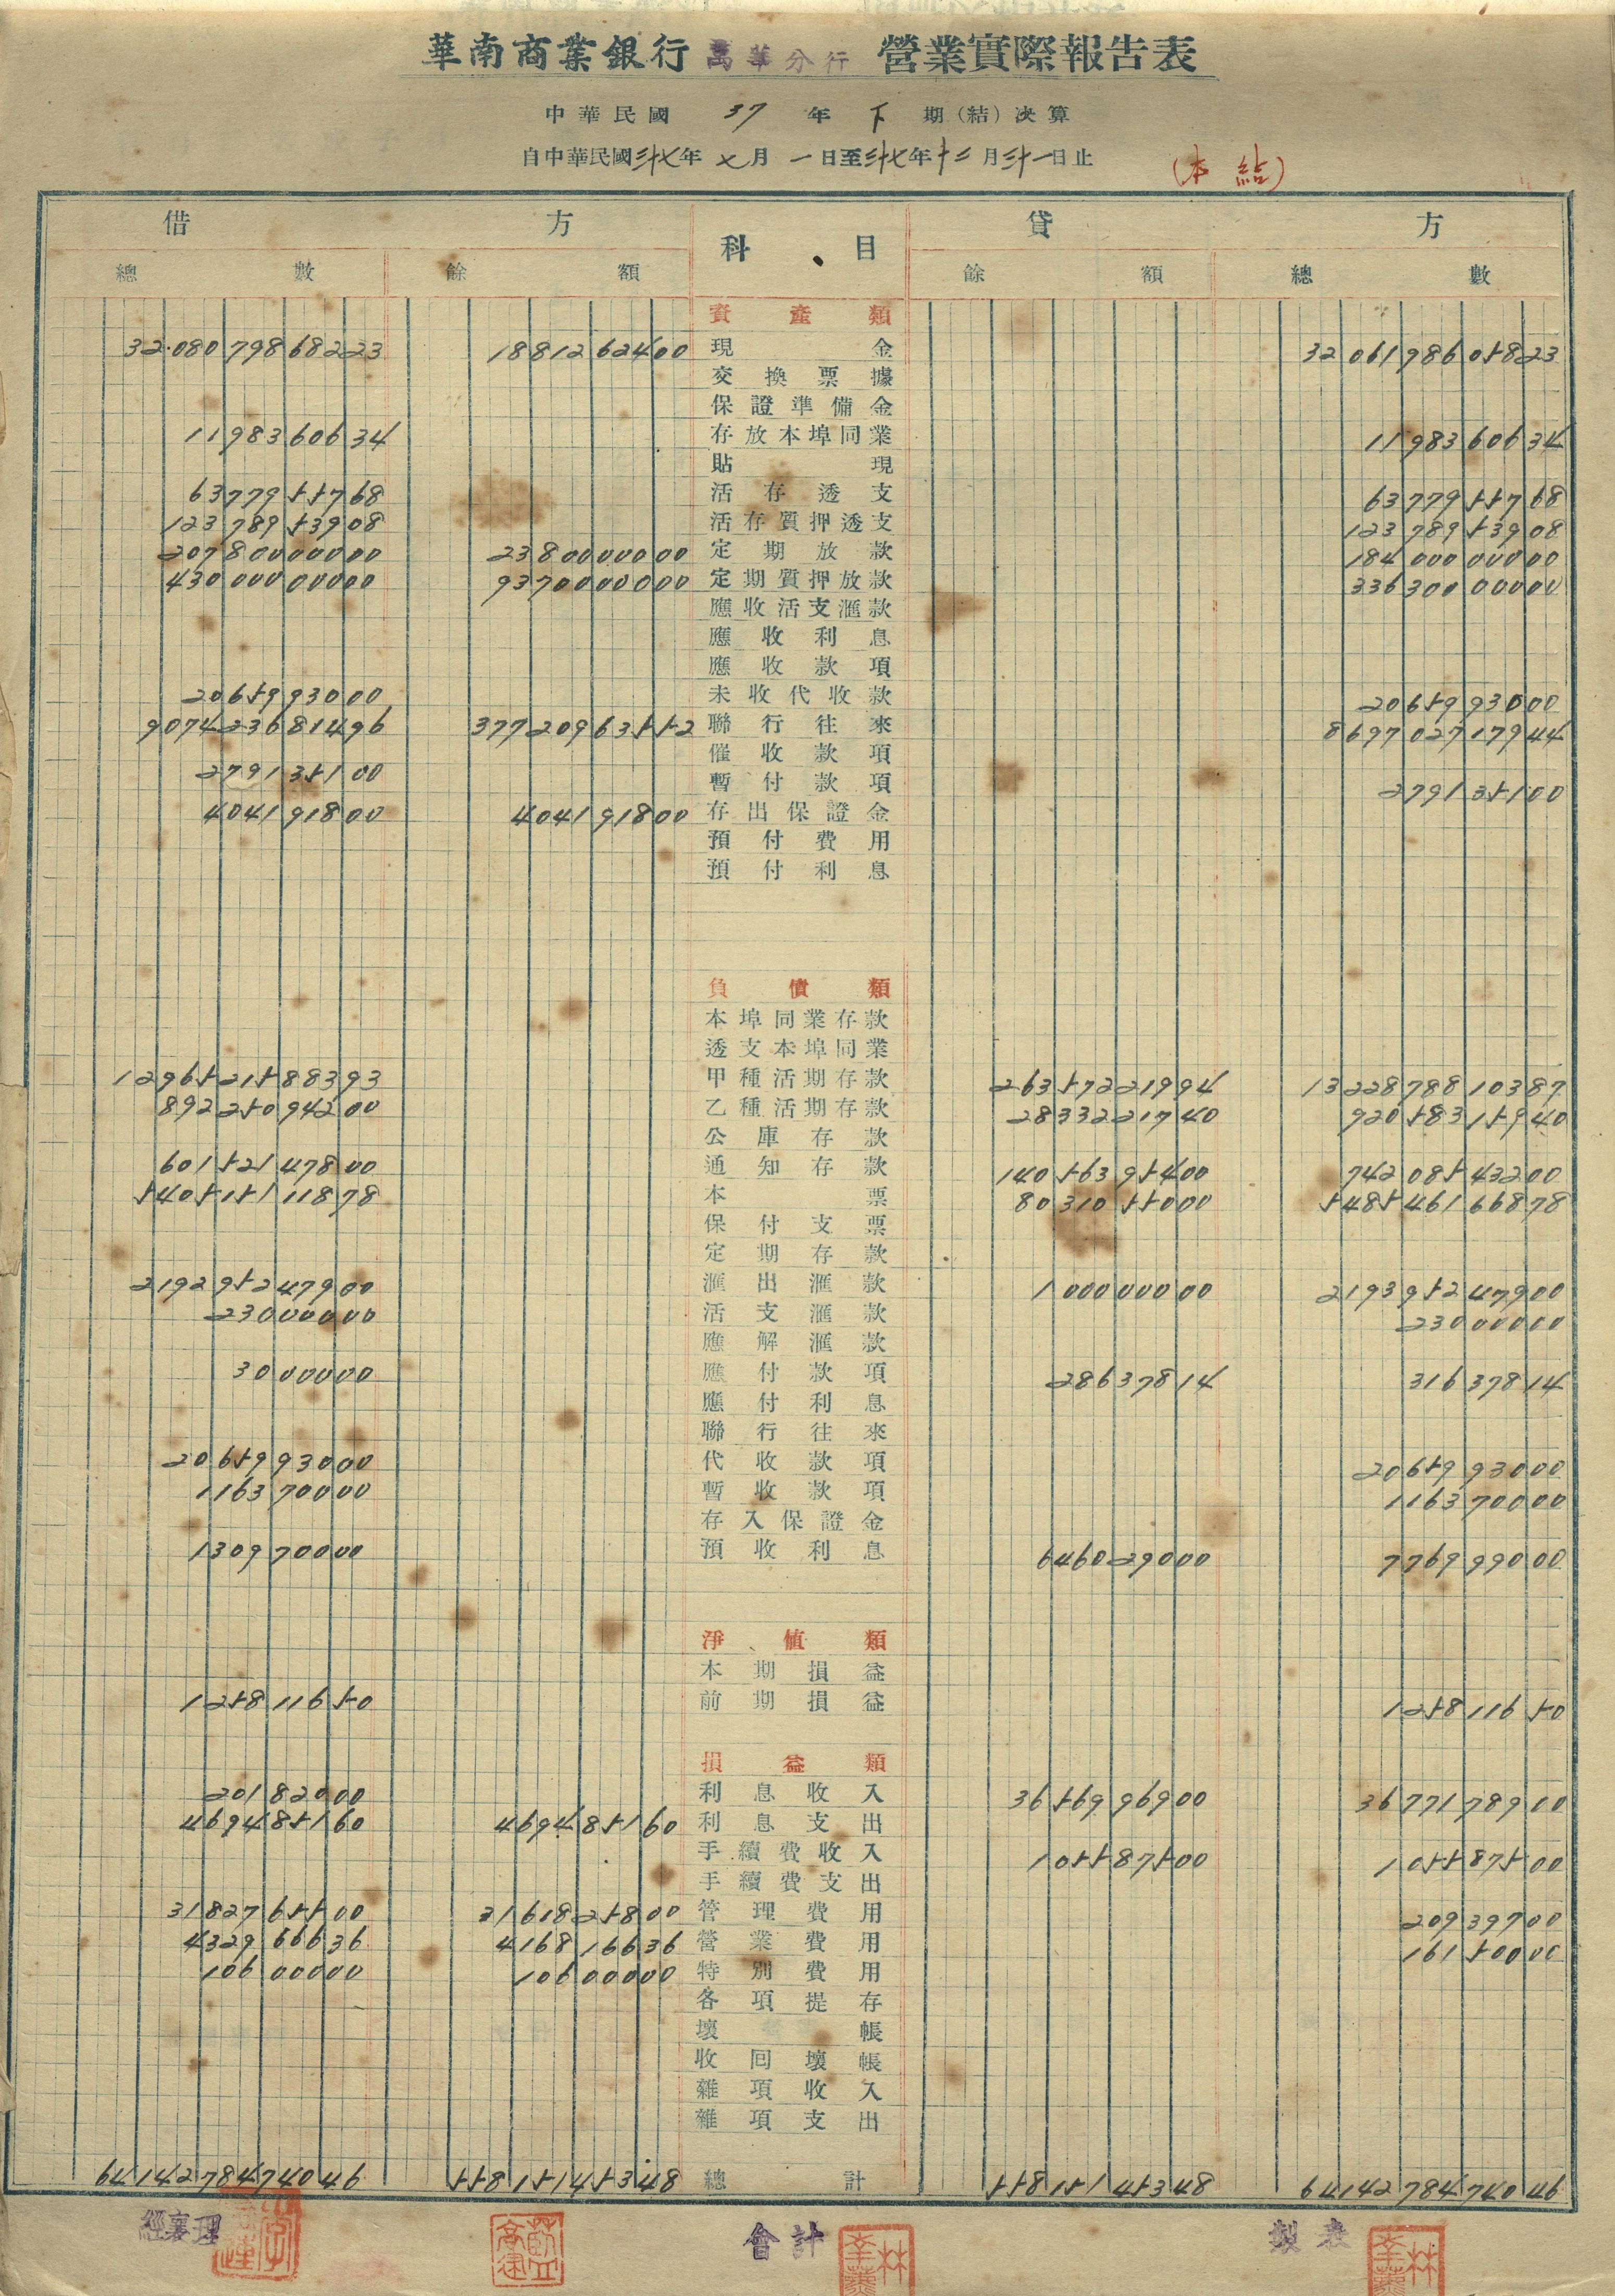 華南商業銀行 萬華分行 營業實際報告表
中華民國 37 年 下 期(結)決算
自中華民國三十七年七月一日至三十七年十二月三十一日止 (本結)
借方 科目 貸方
總數 餘額 餘額 總數
資產類
3208079868223 1881262400 現金 3206198605823
交換票據
保證準備金
1198360634 存放本埠同業 1198360634
貼現
6377955768 活存透支 6377955768
12378953908 活存質押透支 12378953908
20780000000 2380000000 定期放款 18400000000
43000000000 9370000000 定期質押放款 33630000000
應收活支滙款
應收利息
應收款項
2065993000 未收代收款 2065993000
907423681496 37720963552 聯行往來 869702717944
催收款項
279135100 暫付款項 279135100
404191800 404191800 存出保證金
預付費用
預付利息
負債類
本埠同業存款
透支本埠同業
1296521588393 甲種活期存款 26357221994 1322878810387
89225094200 乙種活期存款 2833221740 92058315940
公庫存款
60152147800 通知存款 14056395400 74208543200
540515111878 本票 8031055000 548546166878
保付支票
定期存款
219295247900 滙出滙款 100000000 219395247900
23000000 活支滙款 23000000
應解滙款
3000000 應付款項 28637814 31637814
應付利息
聯行往來
2065993000 代收款項 2065993000
116370000 暫收款項 116370000
存入保證金
130970000 預收利息 646029000 776999000
淨值類
本期損益
125811650 前期損益 125811650
損益類
20182000 利息收入 3656996900 3677178910
469485160 469485160 利息支出
手續費收入 105587500 105587500
手續費支出
3182765500 3161825800 管理費用 20939700
432966636 416816636 營業費用 16150000
10600000 10600000 特別費用
各項提存
壞帳
收回壞帳
雜項收入
雜項支出
6414278474046 55815145348 總計 55815145348 6414278474046
經襄理 會計 製表